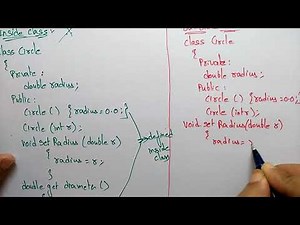 Inside class:
Class Circle
{
Private:
double radius;
Public:
Circle () {radius=0.0;}
Circle (int r);
void set Radius (double r)
{
radius = r;
}
double get diameter ()
defined inside class
Class Circle
{
Private:
double radius;
Public:
Circle () {radius=0.0;}
Circle (int r);
void set Radius(double r)
{
radius =